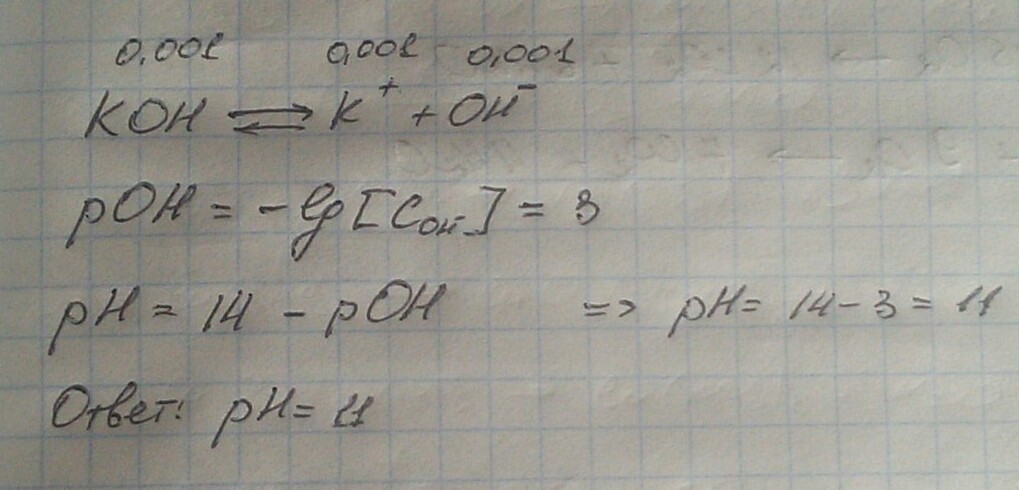 0,001 0,001 0,001
KOH ⇌ K⁺ + OH⁻
pOH = -lg [C_OH⁻] = 3
pH = 14 - pOH => pH = 14 - 3 = 11
Ответ: pH = 11